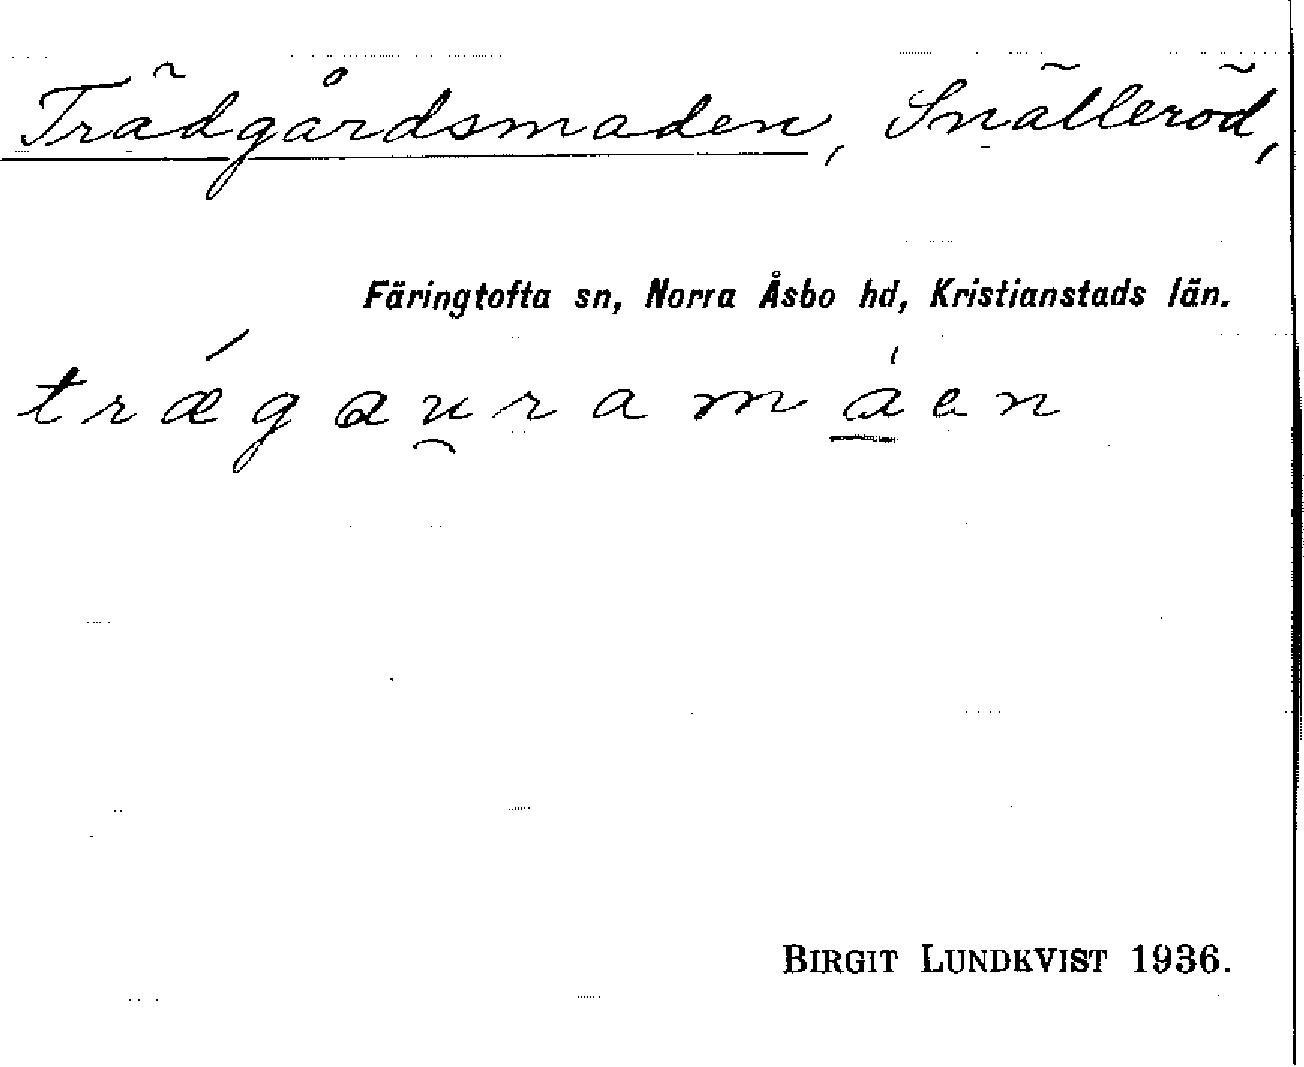 Trädgårdsmaden, Snälleröd,
Färingtofta sn, Norra Åsbo hd, Kristianstads län.
trǽgau̯ramáen
BIRGIT LUNDKVIST 1936.